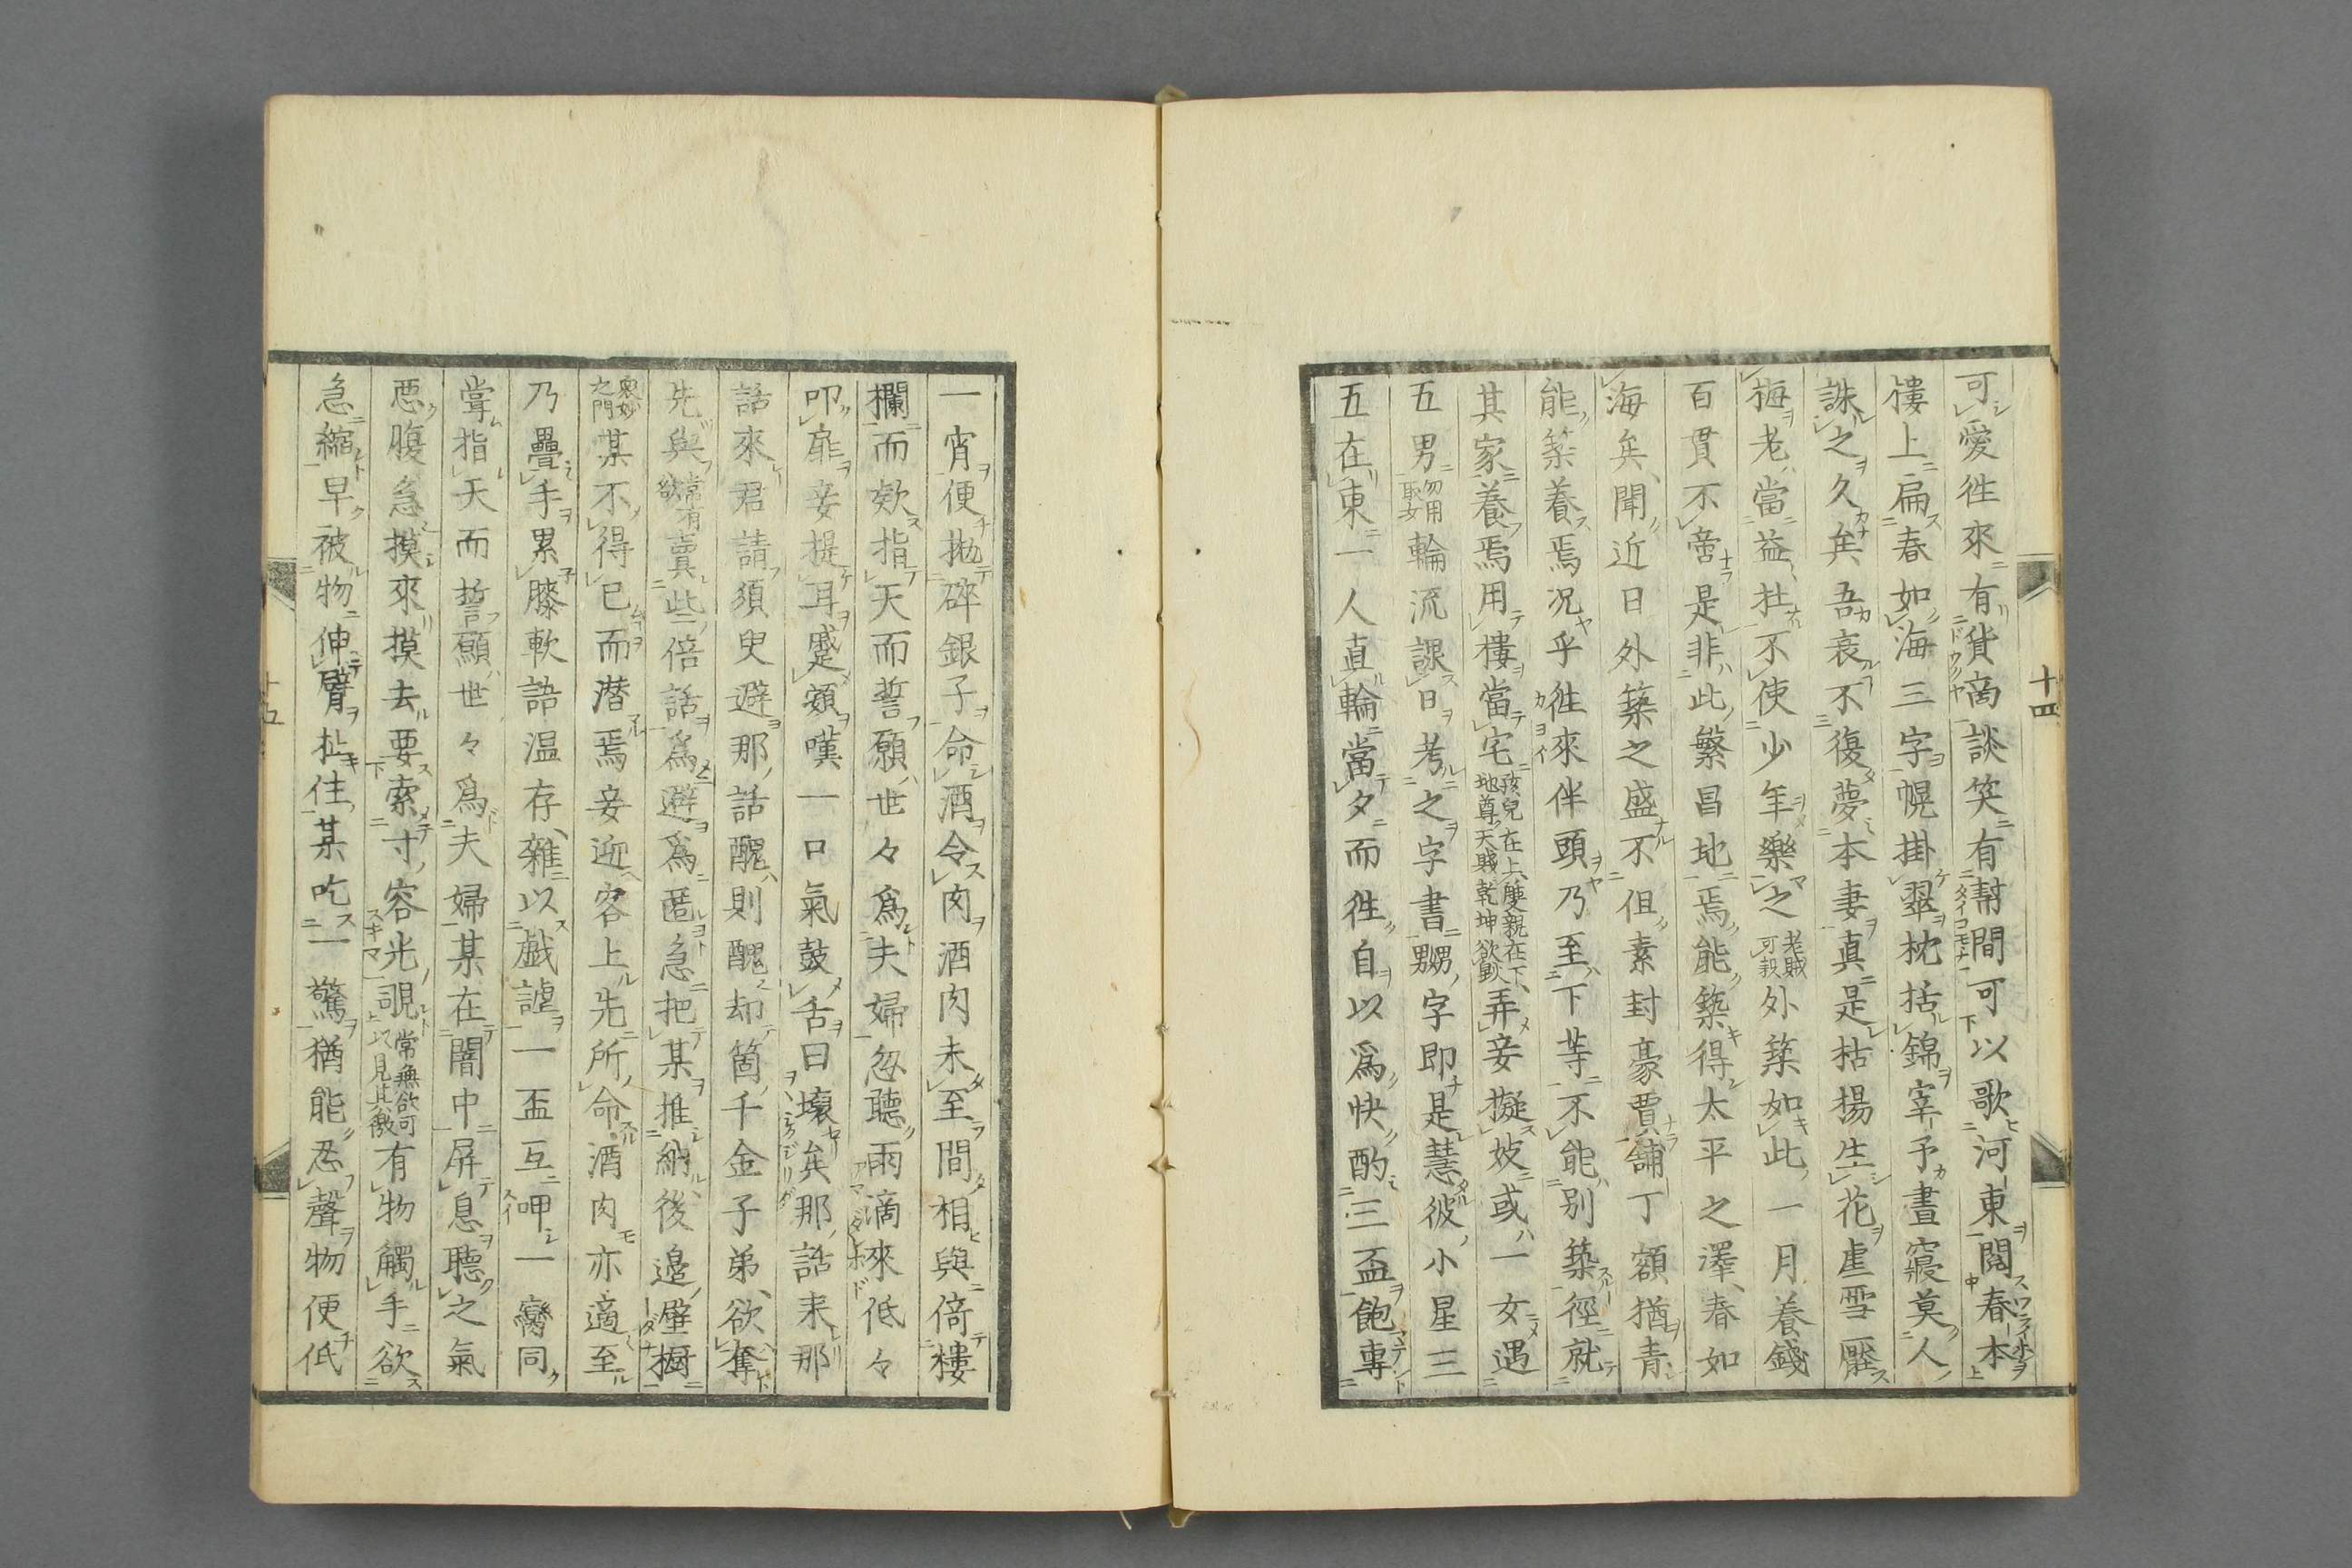 可愛徃來有貨商談笑有幇間可以歌河東閲春本
樓上扁春如海三字幌掛翠枕括錦宰予晝寢莫人
誅之久矣吾衰不復夢本妻真是枯楊生花虐雪壓
梅老當益壯不使少年樂之老賊可殺外築如此一月養錢
百貫不啻是非此繁昌地焉能築得太平之澤春如
海矣聞近日外築之盛不但素封豪賈舖丁額猶青
能築養焉况乎徃來伴頭乃至下等不能別築徑就
其家養焉用樓當宅孩兒在上雙親在下地尊天賤乾坤欲毀弄妾擬妓或一女遇
五男勿用取女輪流課日考之字書嬲字即是慧彼小星三
五在東一人直輪當夕而徃自以爲快酌三盃飽專
十四
一宵便抛碎銀子命酒令肉酒肉未至間相與倚樓
欄而欸指天而誓願世々爲夫婦忽聽雨滴來低々
叩扉妾提耳蹙額嘆一口氣鼓舌曰壞矣那話来那
話來君請須臾避那話醜則醜却箇千金子弟欲奪
先與常有欲賣些倍話爲避爲匿急把某推納後邊壁橱
衆妙之門某不得已而潜焉妾迎客上先所命酒肉亦適至
乃疊手累膝軟語温存雜以戯謔一盃互呷一臠同
甞指天而誓願世々爲夫婦某在闇中屏息聽之氣
悪腹急摸來摸去要索寸容光覗常無欲可以見其徼有物觸手欲
急縮早被物伸臂扯住某吃一驚猶能忍聲物便低